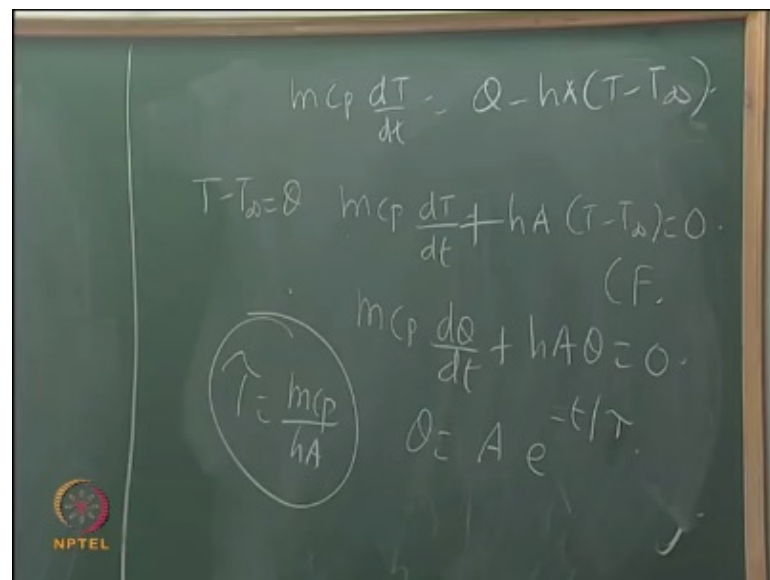 mcp dT/dt = Q - hA(T-T∞).
T-T∞=θ mcp dT/dt + hA (T-T∞)=0.
CF.
mcp dθ/dt + hAθ=0.
τ = mcp/hA θ= A e^-t/τ.
NPTEL